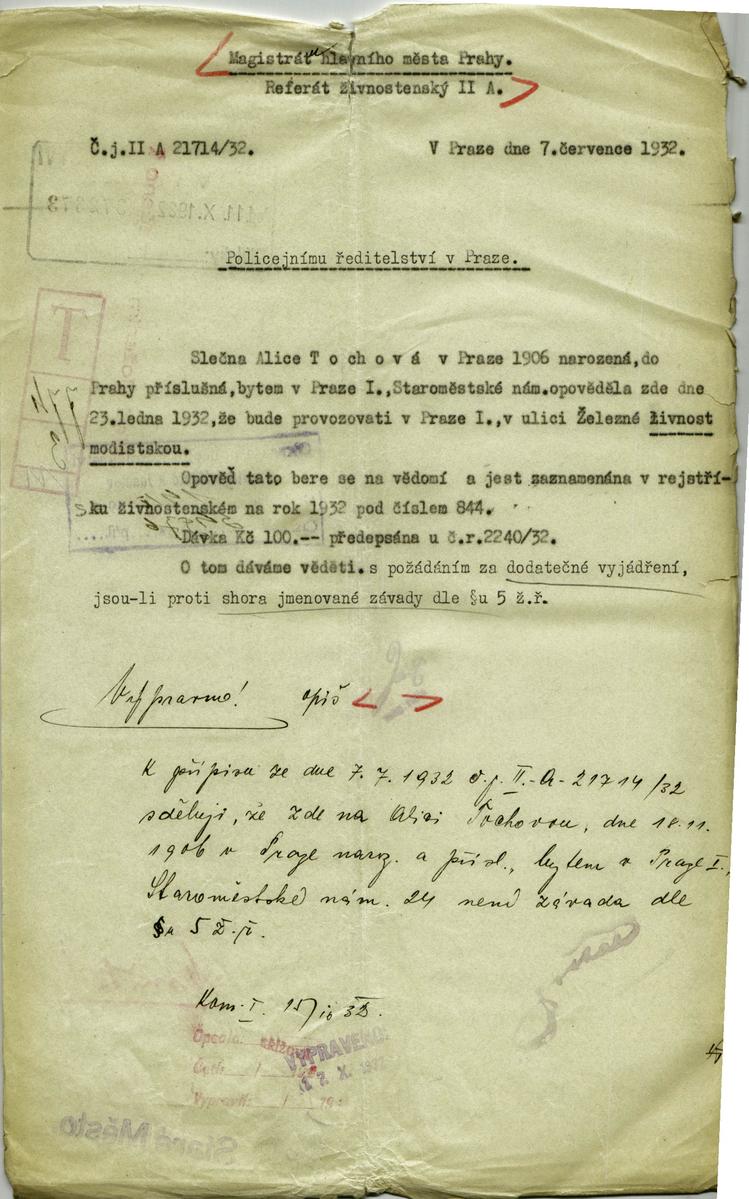 Magistrát hlavního města Prahy.
Referát živnostenský II A.
Č.j.II A 21714/32.
V Praze dne 7.července 1932.
Policejnímu ředitelství v Praze.
Slečna Alice T o ch o v á v Praze 1906 narozená,do
Prahy příslušná,bytem v Praze I.,Staroměstské nám.opověděla zde dne
23.ledna 1932,že bude provozovati v Praze I.,v ulici Železné živnost
modistskou.
Opověď tato bere se na vědomí a jest zaznamenána v rejstří-
ku živnostenském na rok 1932 pod číslem 844.
Dávka Kč 100.-- předepsána u č.r.2240/32.
O tom dáváme věděti. s požádáním za dodatečné vyjádření,
jsou-li proti shora jmenované závady dle §u 5 ž.ř.
Vypravino! opis
K přípisu ze dne 7.7.1932 č.j. II.-A-21714/32
sděluji, že zde na Alici Tochovou, dne 18.11.
1906 v Praze naroz. a přísl., bytem v Praze I.,
Staroměstské nám. 24 není závada dle
§u 5 ž.ř.
Kom. I. 15/10 32.
Opsala:
Četli:
Vypravil:
VYPRAVENO
Staré Město
T